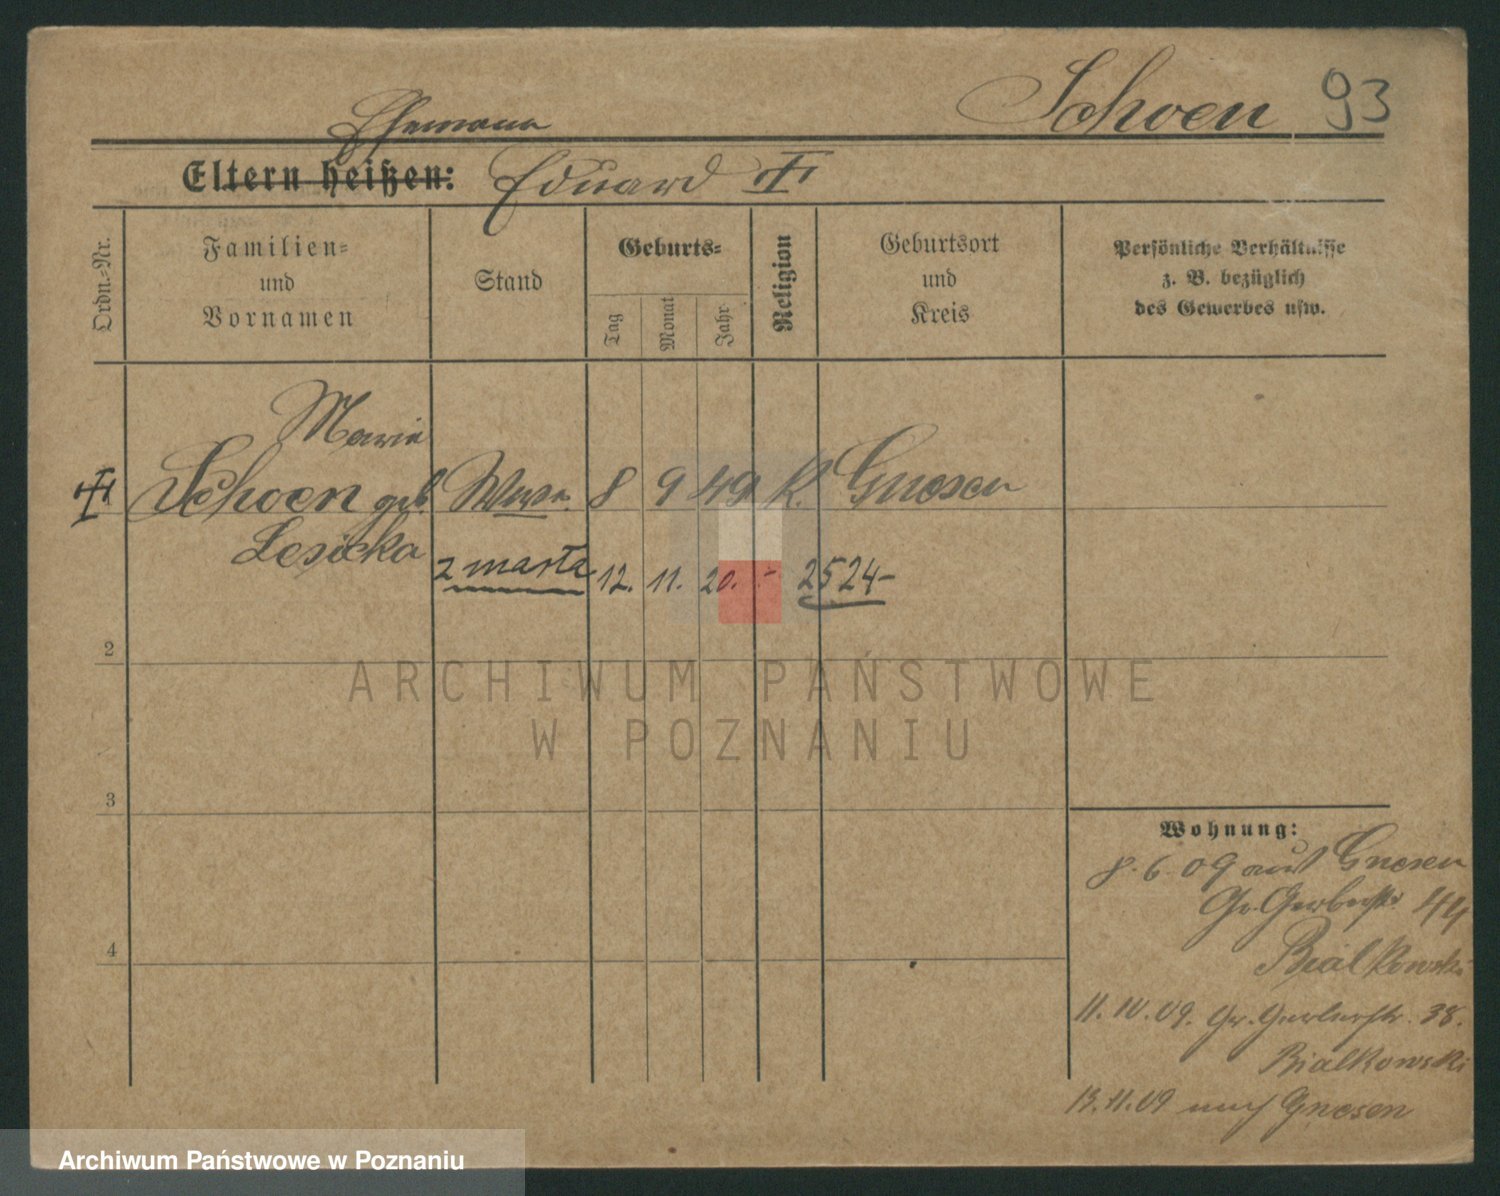 Schoen 93
Ehemann
Eltern heißen: Eduard
Ordn.-Nr.
Familien-
und
Vornamen
Stand
Geburts-
Tag
Monat
Jahr
Religion
Geburtsort
und
Kreis
Persönliche Verhältnisse
z. B. bezüglich
des Gewerbes usw.
Marie
Schoen geb. Wwe. 8 9 49 K. Gnesen
Lesicka
zmarła 12. 11. 20. 2524
2
ARCHIWUM PAŃSTWOWE
W POZNANIU
3
Wohnung:
8. 6. 09 aus Gnesen
Gr. Gerberstr. 44
Bialkowski
11. 10. 09. Gr. Gerberstr. 38.
Bialkowski
13. 11. 09 nach Gnesen
4
Archiwum Państwowe w Poznaniu